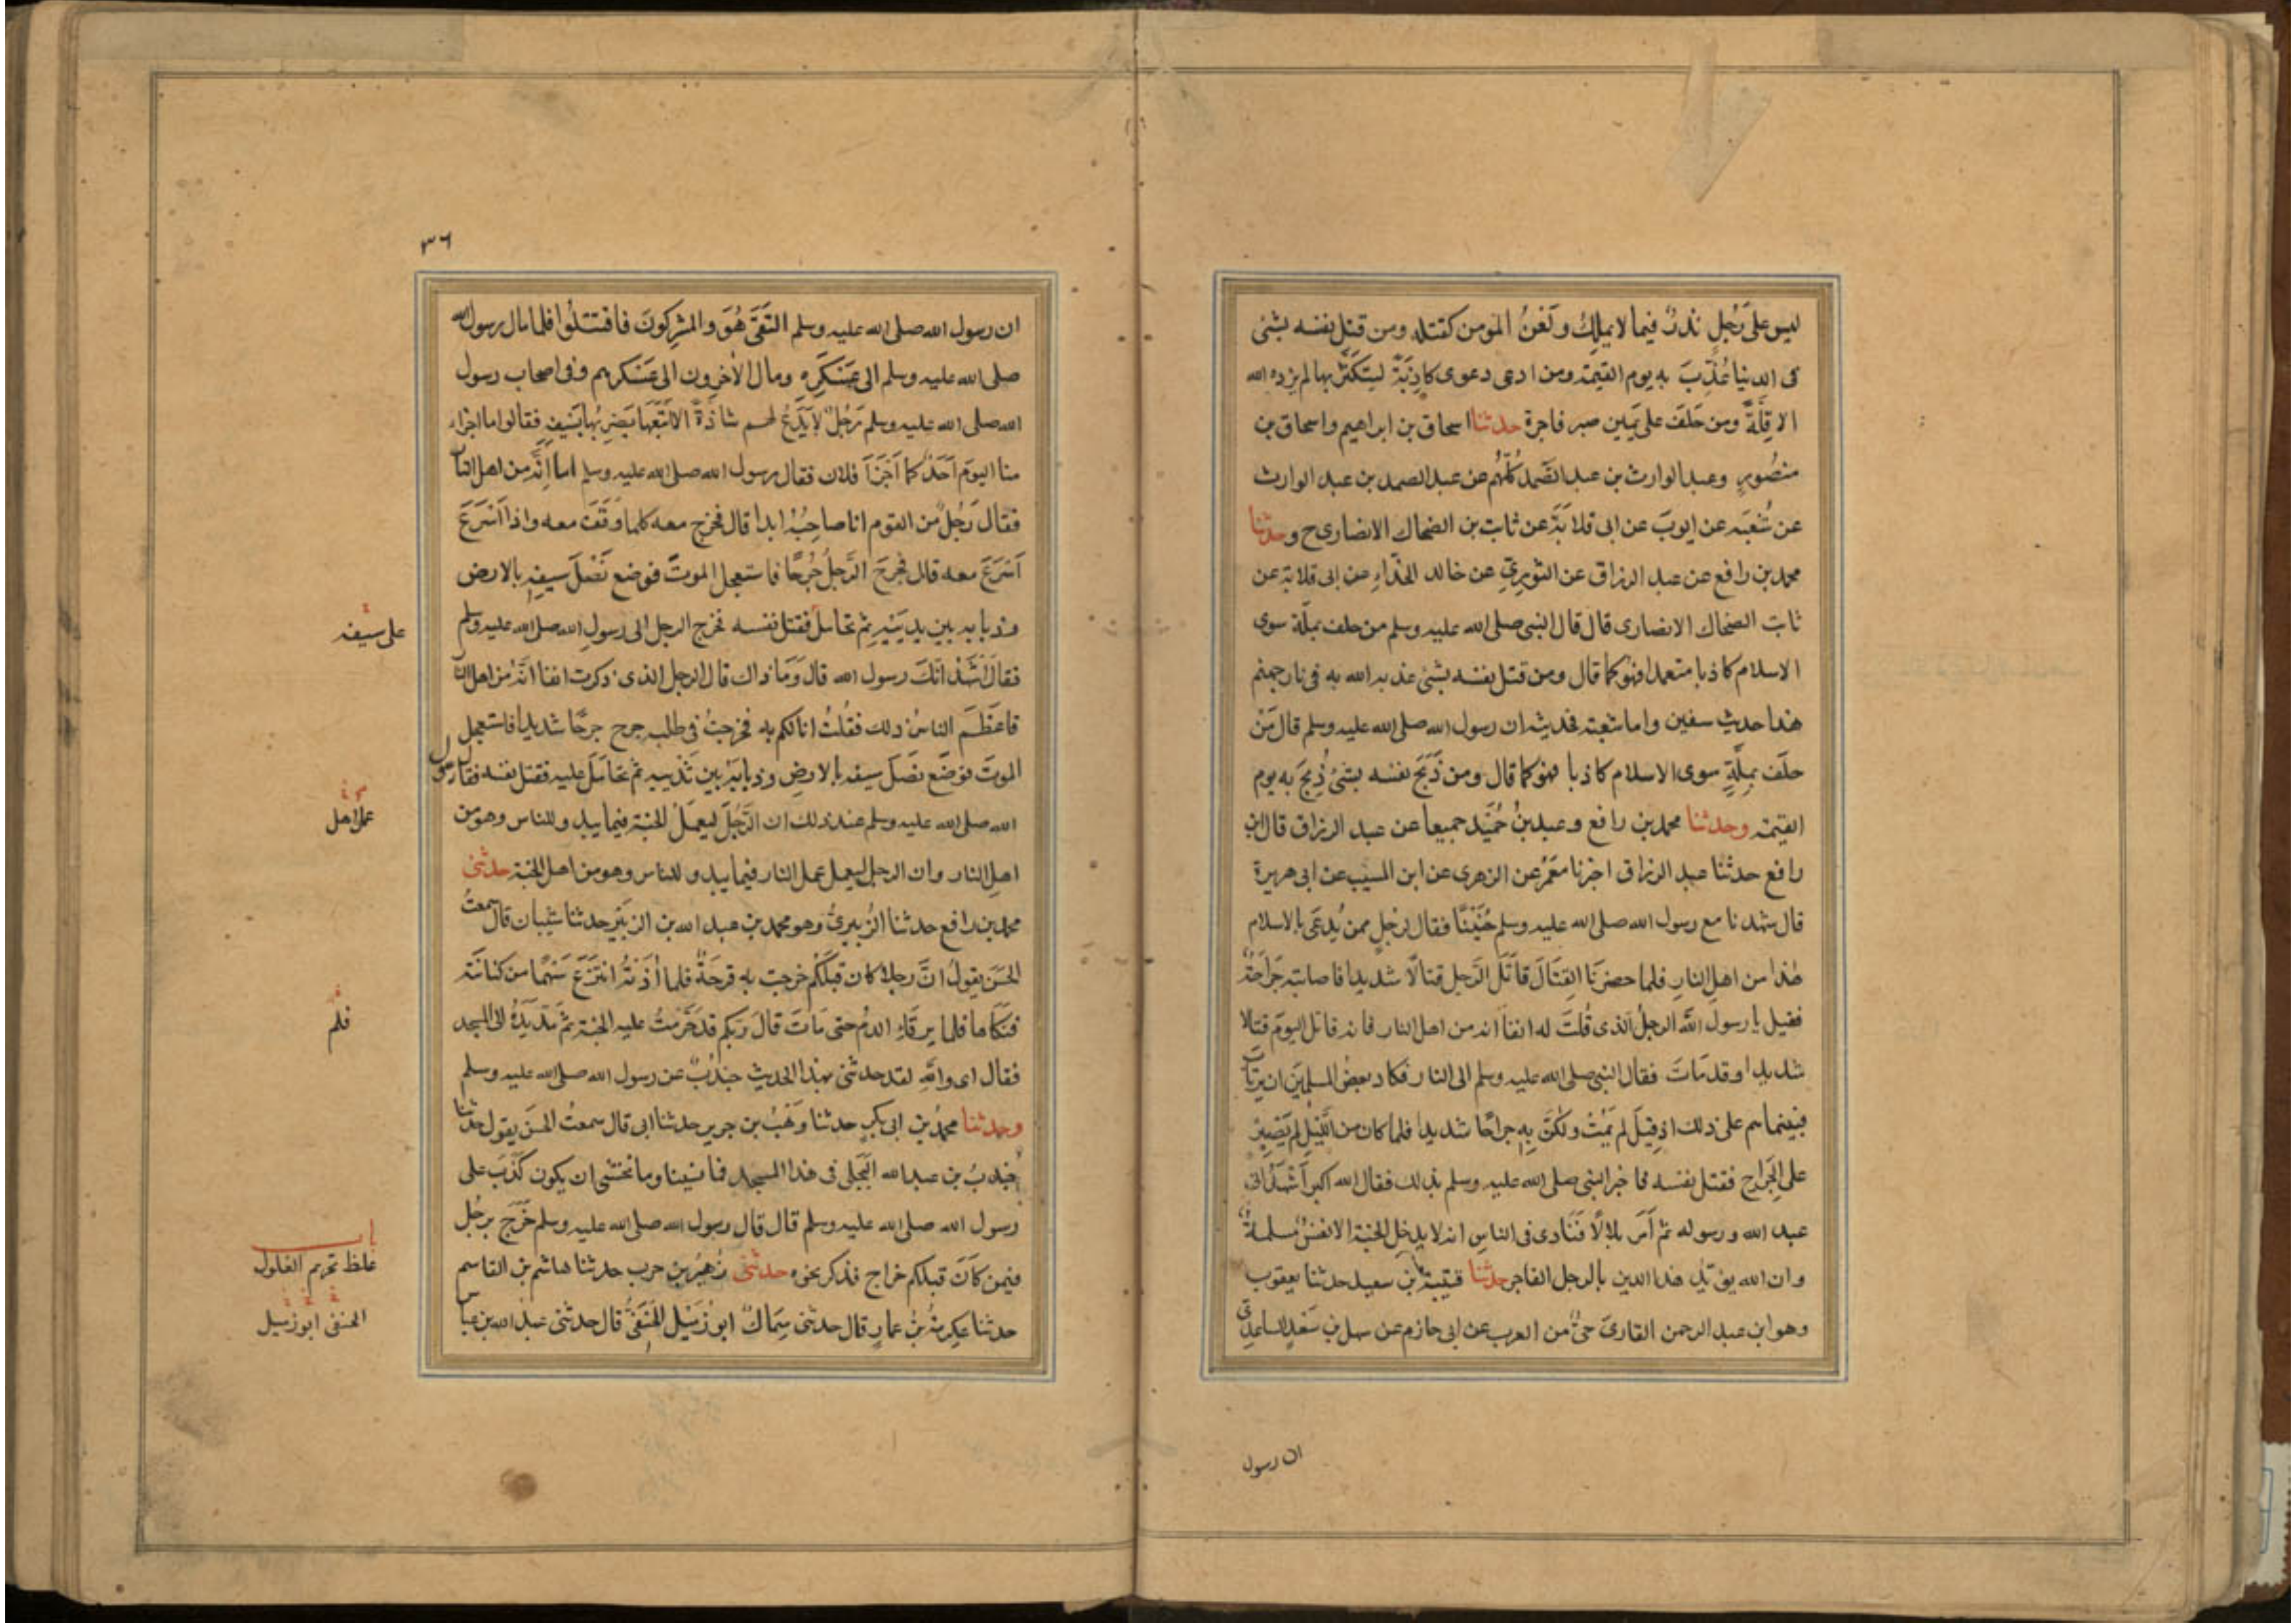 ليس على رَجُلٍ نذرٌ فيما لا يملِكُ ولَعْنُ المؤمن كقتله ومن قتل نفسه بشئ
فى الدنيا عُذِّبَ به يوم القيمة ومن ادعى دعوى كاذِبَةً ليتكَثَّرَ بها لم يزده الله
الا قِلَّةً ومن حَلَفَ على يَمِين صبر فاجرة حدثنا اسحاق بن ابراهيم واسحاق بن
منصُورٍ وعبد الوارث بن عبد الصَّمد كُلُّهُم عن عبد الصمد بن عبد الوارث
عن شُعبَة عن ايوبَ عن ابى قلابَةَ عن ثابت بن الضحاك الانصارى ح وحدثنا
محمد بن رافع عن عبد الرزاق عن الثورِيّ عن خالد الحذّاءِ عن ابى قلابة عن
ثابت الضحاك الانصارى قال قال النبى صلى الله عليه وسلم من حلف بملّة سوى
الاسلام كاذبا متعمدا فهو كما قال ومن قتل نفسه بشئ عذبه الله به فى نار جهنم
هذا حديث سفين واما شعبة فحديثه ان رسول الله صلى الله عليه وسلم قال مَنْ
حلَف بمِلَّةٍ سوى الاسلام كاذبا فهو كما قال ومن ذَبَحَ نفسه بشئ ذُبِحَ به يوم
القيمة وحدثنا محمد بن رافع وعبد بنُ حُمَيْد جميعا عن عبد الرزاق قال ابن
رافع حدثنا عبد الرزاق اخبرنا معمَرٌ عن الزهرى عن ابن المسيب عن ابى هريرة
قال شهدنا مع رسول الله صلى الله عليه وسلم حُنَيْنًا فقال لرَجُلٍ ممن يُدعَى بالاسلام
هٰذا من اهلِ النارِ فلما حضَرْنَا القِتَالَ قاتَلَ الرَّجل قتالًا شديدا فاصابته جَرَاحةٌ
فقيل يا رسولَ اللّه الرجلُ الذى قُلتَ له انفا انه من اهل النار فانه قاتل اليومَ قتالا
شديدا وقد مَاتَ فقال النبى صلى الله عليه وسلم الى النار فكاد بعضُ المسلمِينَ ان يرتاب
فبينما هم على ذلك اذ قِيلَ لم يَمُتْ ولكنّ بِهِ جراحًا شديدا فلما كان من الليْلِ لم يَصْبِرْ
على الجِرَاحِ فقتل نفسه فاخبر النبى صلى الله عليه وسلم بذلك فقال الله اكبر اَشْهَدُ انى
عبد الله ورسوله ثم اَمَر بلالًا فَنَادى فى الناسِ انه لا يدخل الجنة الا نفسٌ مسلمةٌ
وان الله يؤيّد هذا الدين بالرجل الفاجر حدثنا قتيبة بن سعيد حدثنا يعقوب
وهو ابن عبد الرحمن القارىَ حىٌّ من العرب عن ابى حازم عن سهل بن سَعْدٍ الساعدىّ
ان رسول
٣٦
ان رسول الله صلى الله عليه وسلم التَقَى هُوَ والمشرِكونَ فاقتَتَلُوا فلما مال رسول الله
صلى الله عليه وسلم الى عَسْكَرِه ومال الآخِرون الى عَسْكرهم وفى اصحاب رسول
الله صلى الله عليه وسلم رَجُلٌ لا يَدَعُ لهم شاذّةً الا اتبَعَها يَضرِبُها بسَيفِه فقالوا ما اجزاء
منا اليومَ اَحَدٌ كما اَجْزَأَ فلان فقال رسول الله صلى الله عليه وسلم اما اِنَّه من اهل النار
فقال رَجُلٌ من القوم انا صاحِبُهُ ابدا قال فخرج معه كلما وقَفَ معه واذا اَسْرَعَ
اَسْرَعَ معه قال فجُرِحَ الرَّجلُ جُرحًا فاستعجل الموتَ فوضع نَصْلَ سيفه بالارض
وذبابه بين يديَيْهِ ثم تحامل فقتل نفسه فخرج الرجل الى رسولِ الله صلى الله عليه وسلم
على سيفه
فقال اَشْهَدُ انّكَ رسول الله قال وَمَا ذاك قال الرجل الذى ذكرت انفا انّهُ من اهل النار
فاعظَمَ الناسُ ذلك فقُلتُ انا لكم به فخرجتُ فى طلبه جرح جرحًا شديدا فاستعجل
الموتَ فوضَع نصْلَ سيفه بالارضِ وذبابَهُ بين ثَدييه ثم تحامَلَ عليه فقتل نفسه فقال رسول
الله صلى الله عليه وسلم عند ذلك ان الرَّجُلَ ليعمَلُ الجنة فيما يبدو للناس وهو من
عمل اهل
اهلِ النار وان الرجل ليعمل عمل النار فيما يبدو للناس وهو من اهل الجنة حدثنى
محمد بن رافع حدثنا الزُّبيرىُّ وهو محمد بن عبد الله بن الزبَيْر حدثنا شيبان قال سمعتُ
الحَسَن يقول انّ رجلا كان قبلَكم خرجت به قرحَةٌ فلما اٰذتْهُ انتَزَعَ سَهْمًا من كنانَتة
فنكَاها فلما يرقاءِ الدمُ حتى مَاتَ قالَ ربكم قد حَرَّمتُ عليه الجنة ثم مَدّ يَدَهُ الى المسجد
فلم
فقال اى واللّهِ لقد حدثنى بهذا الحديث جندُبٌ عن رسول الله صلى الله عليه وسلم
وحدثنا محمدُ بن ابى بكر حدثنا وَهْبُ بن جرير حدثنا ابى قال سمعتُ الحسن يقول حدثنا
جُندبُ بن عبد الله البَجَلى فى هذا المسجد فما نسِينا وما نخشى ان يكون كَذَبَ على
رسول الله صلى الله عليه وسلم قال قال رسول الله صلى الله عليه وسلم خَرَج برجُل
فيمن كانَ قبلكم خراج فذكر نحوه حدثنى زهَيرُ بن حرب حدثنا هاشم بن القاسم
باب
غلظ تحريم الغلول
حدثنا عِكرِمَةُ بنُ عمارٍ قال حدثنى سِمَاكٌ ابو زُمَيْل الحَنَفىُّ قال حدثنى عبدُ الله بن عباس
الحنفى ابو زميل